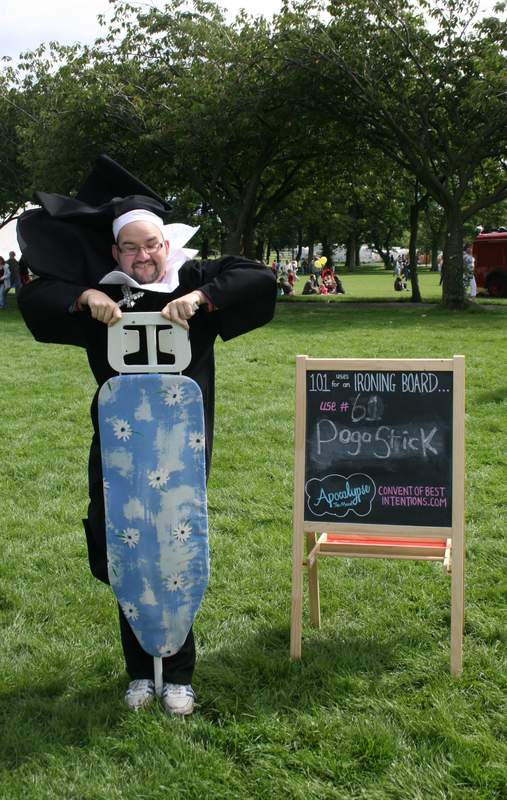 101 uses for an IRONING BOARD...
use # 61
PogoStick
Apocalypse
The Musical
CONVENT OF BEST
INTENTIONS.COM